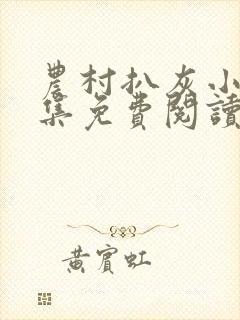 農村扒灰小
集免費閱讀
黃賓虹